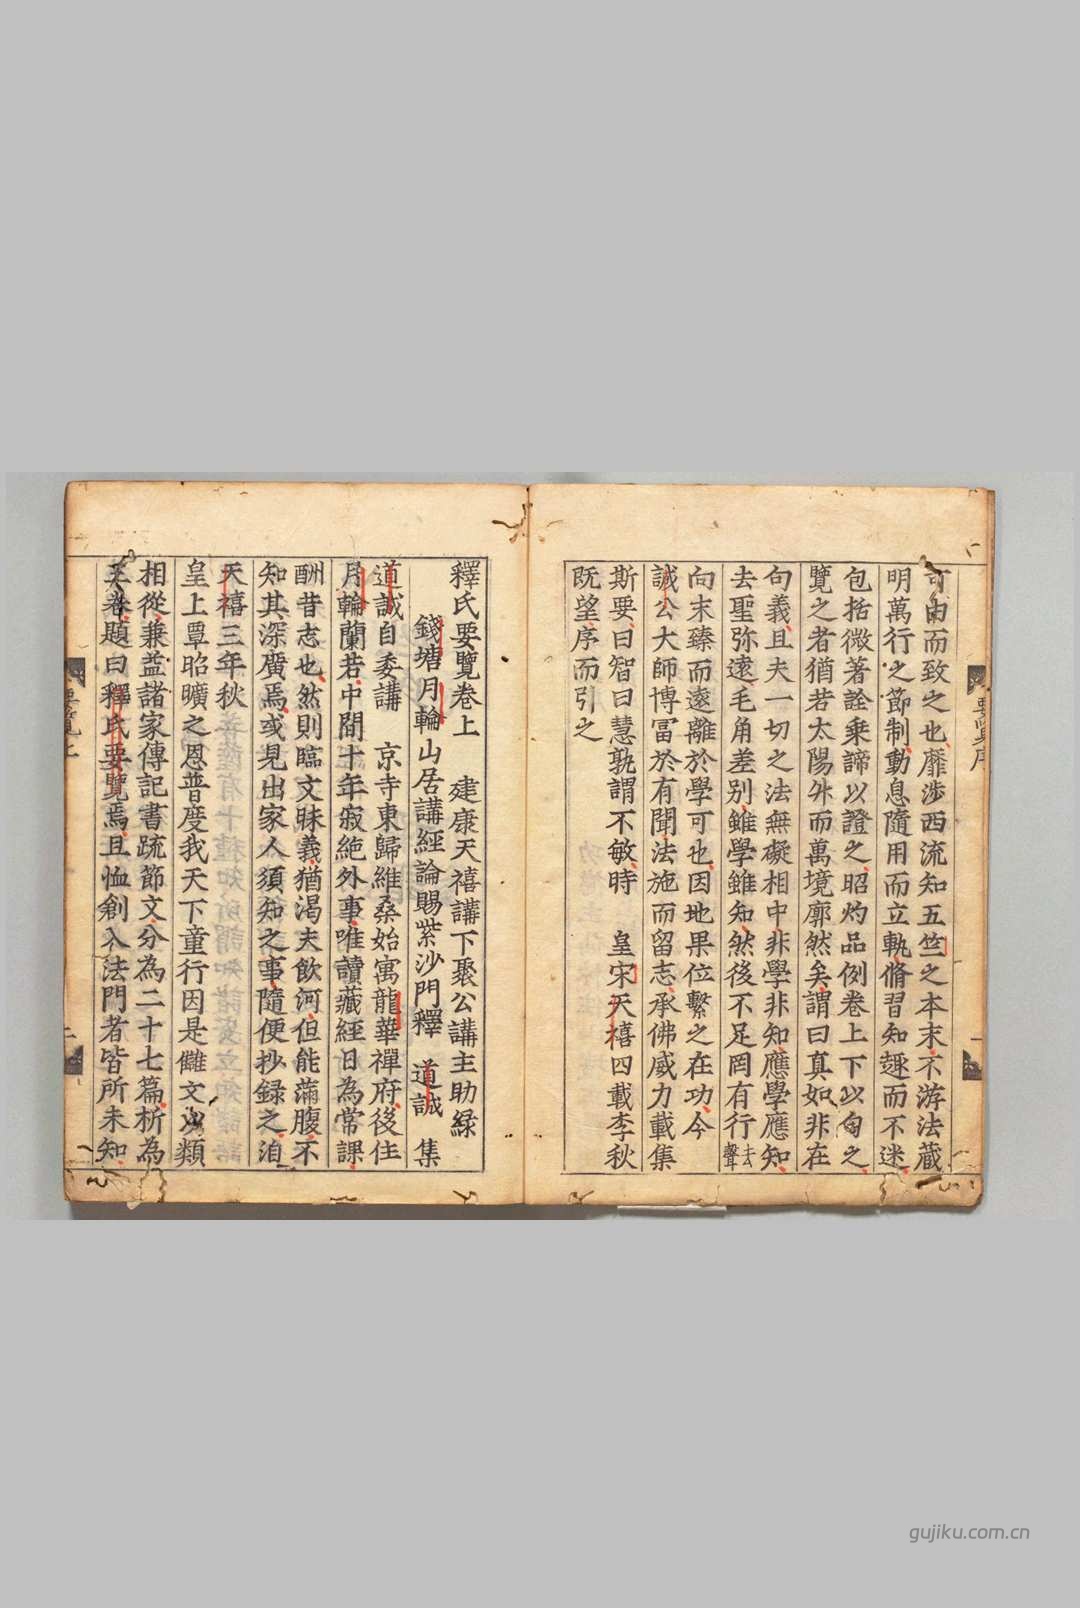 可由而致之也靡涉西流知五竺之本末不游法藏
明萬行之節制動息隨用而立軌脩習知趣而不迷
包括微著詮乗諦以證之昭灼品例卷上下以自之
覽之者猶若太陽外而萬境廓然矣謂曰真如非在
句義且夫一切之法無礙相中非學非知應學應知
去聖弥遠毛角差别雖學雖知然後不足罔有行去聲
向末臻而遠離於學可也因地果位繫之在功今
誠公大師博冨於有聞法施而留志承佛威力載集
斯要曰智曰慧孰謂不敏時 皇宋天禧四載李秋
既望序而引之
要覽序
釋氏要覽卷上 建康天禧講下聚公講主助緑
錢塘月輪山居講經論賜紫沙門釋 道誠 集
道誠自委講 京寺東歸維桑始寓龍華禪府後住
月輪蘭若中間十年寂絶外事唯讀藏經日為常課
酬昔志也然則臨文昧義猶渴夫飲河但能滿腹不
知其深廣焉或見出家人須知之事隨便抄録之洎
天禧三年秋
皇上覃昭曠之恩普度我天下童行因是讎文以類
相從兼益諸家傳記書䟽節文分為二十七篇析為
三卷題曰釋氏要覽焉且恤創入法門者皆所未知
要覽上
一
gujiku.com.cn